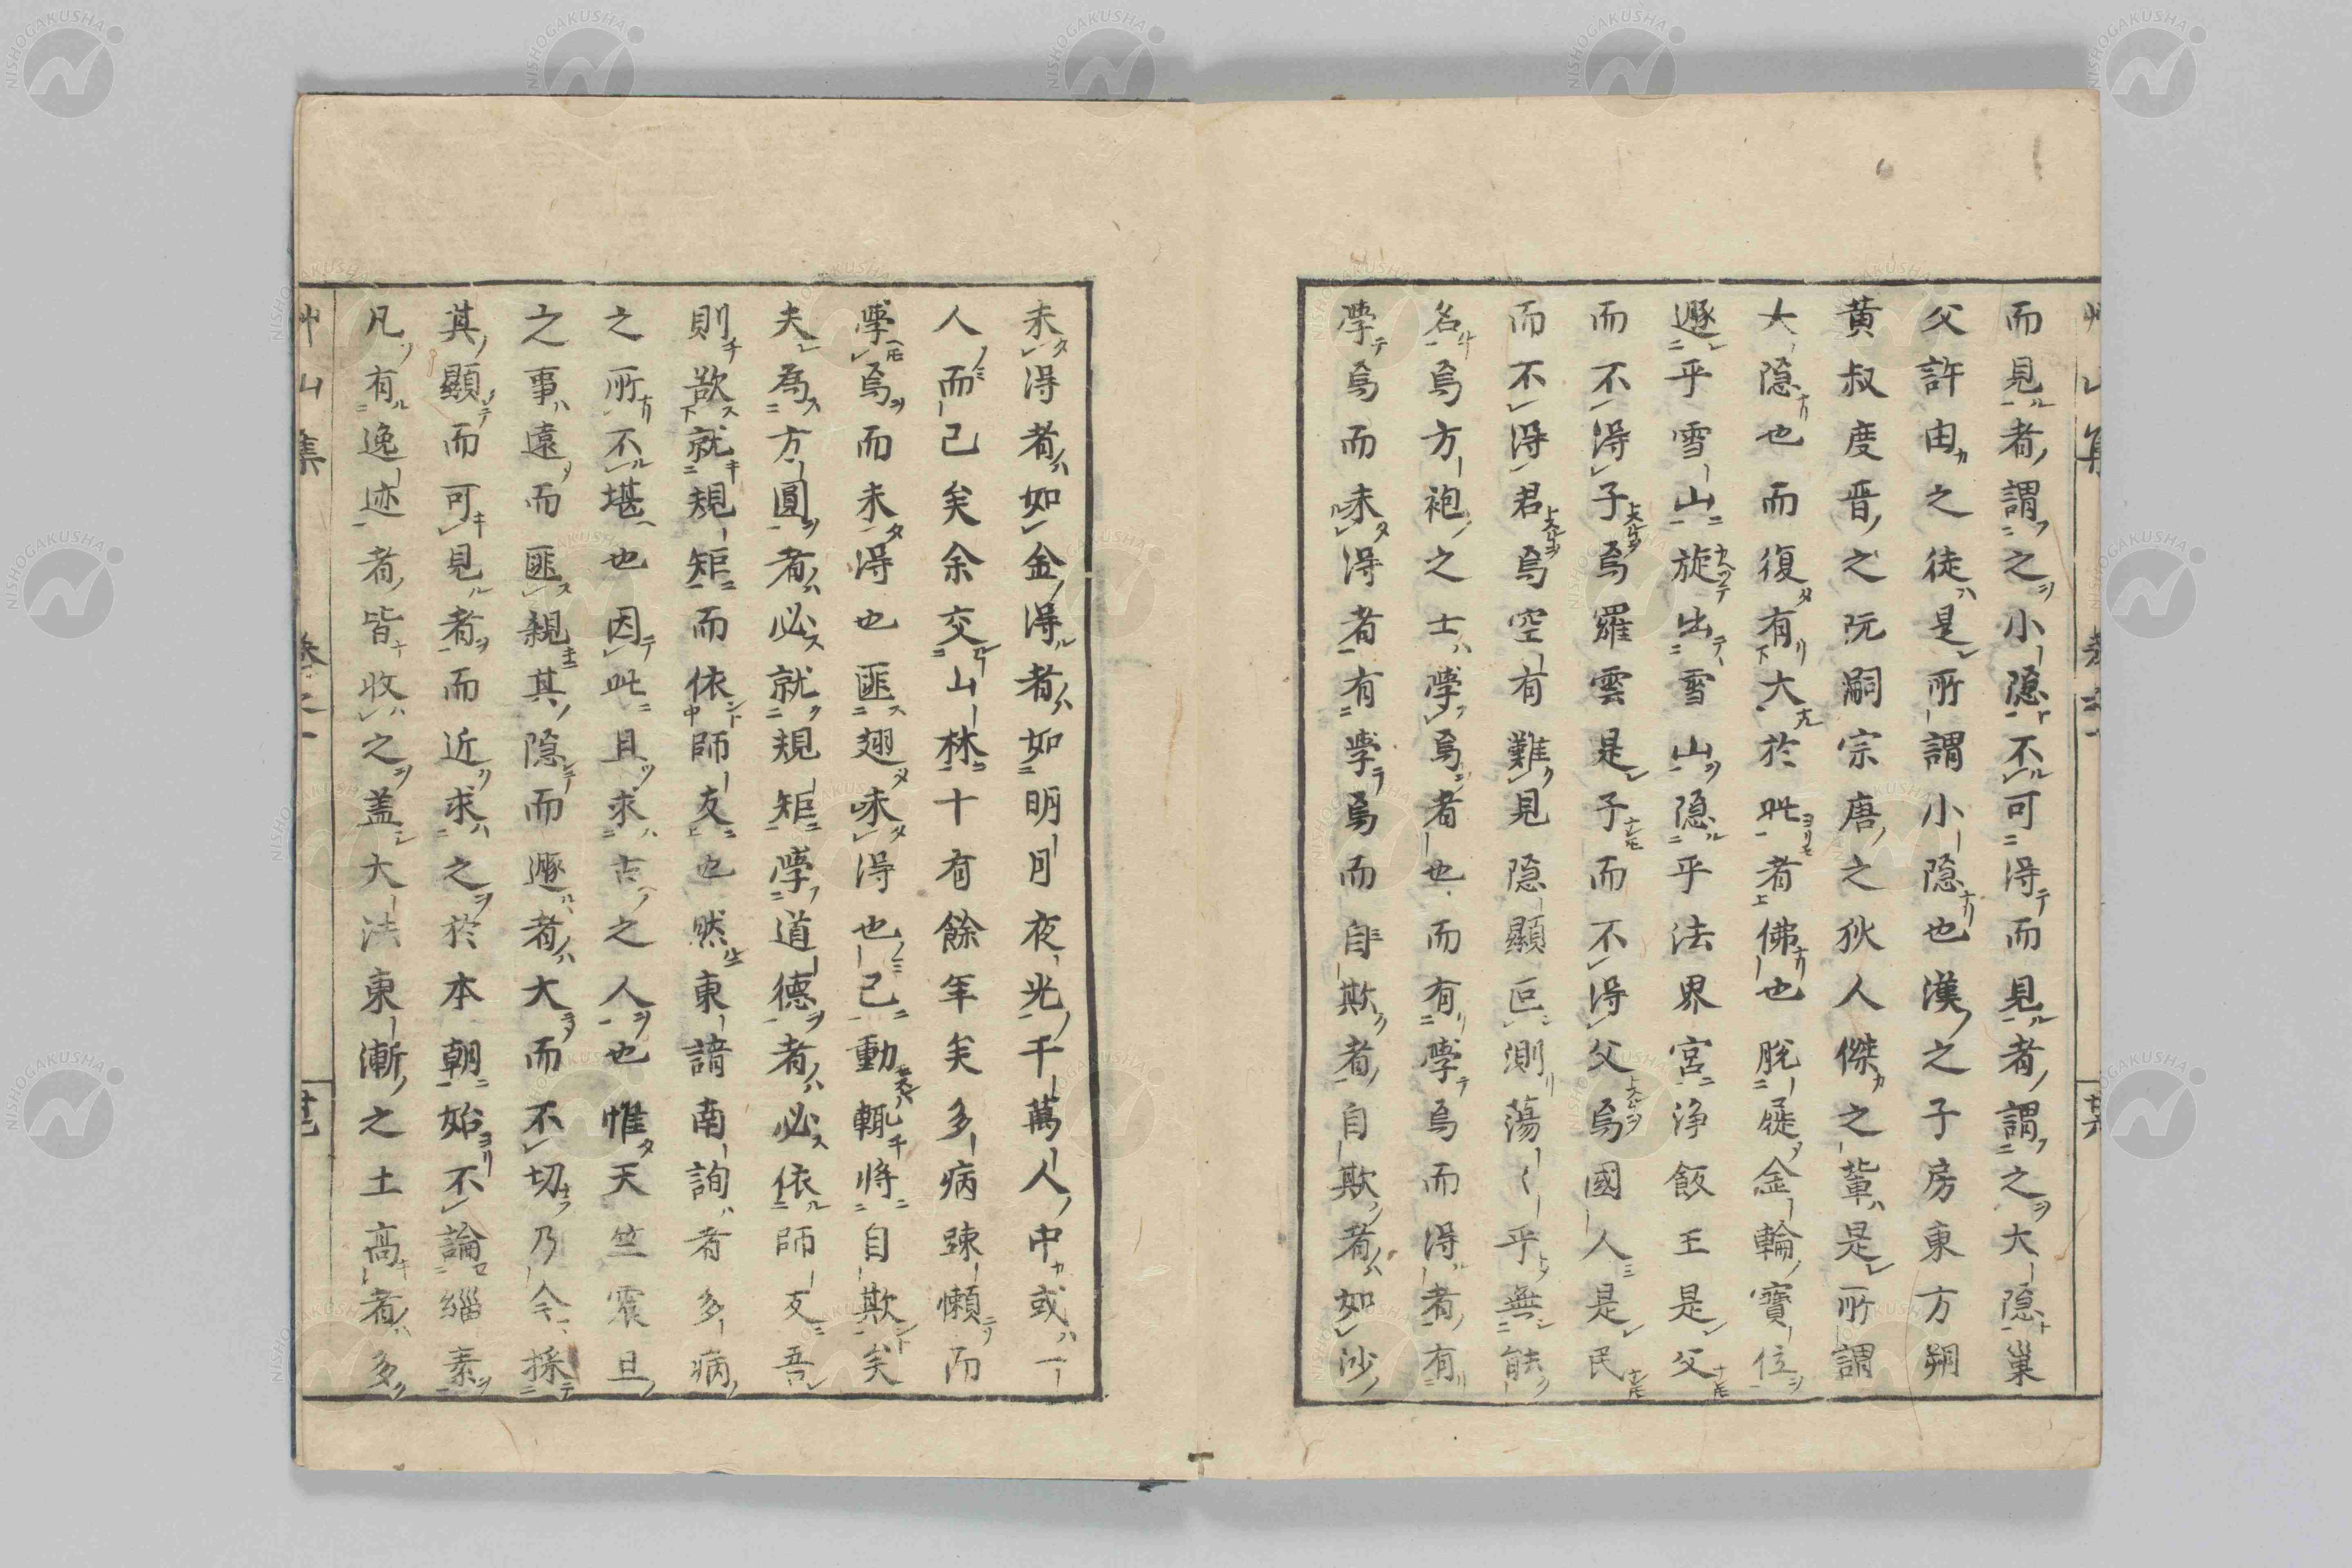 而見者謂之小隠不可得而見者謂之大隠巢
父許由之徒是所謂小隠也漢之子房東方朔
黄叔度晋之阮嗣宗唐之狄人傑之輩是所謂
大隠也而復有大於此者佛也脱屣金輪寶位
遯乎雪山旋出雪山隠乎法界宮浄飯王是父
而不得子焉羅雲是子而不得父焉國人是民
而不得君焉空有難見隠顯叵測蕩〱乎無能
名焉方袍之士學焉者也而有學焉而得者有
學焉而未得者有學焉而自欺者自欺者如沙
未得者如金得者如明月夜光千萬人中或一
人而已矣余交山林十有餘年矣多病踈懶而
學焉而未得也匪翅未得也己動輒将自欺矣
夫為方圓者必就規矩學道德者必依師友吾
則欲就規矩而依師友也然東諳南詢者多病
之所不堪也因此且求古之人也惟天竺震旦
之事遠而匪親其隠而遯者大而不切乃今採
其顯而可見者而近求之於本朝始不論緇素
凡有逸迹者皆收之盖大法東漸之土高者多
艸山集